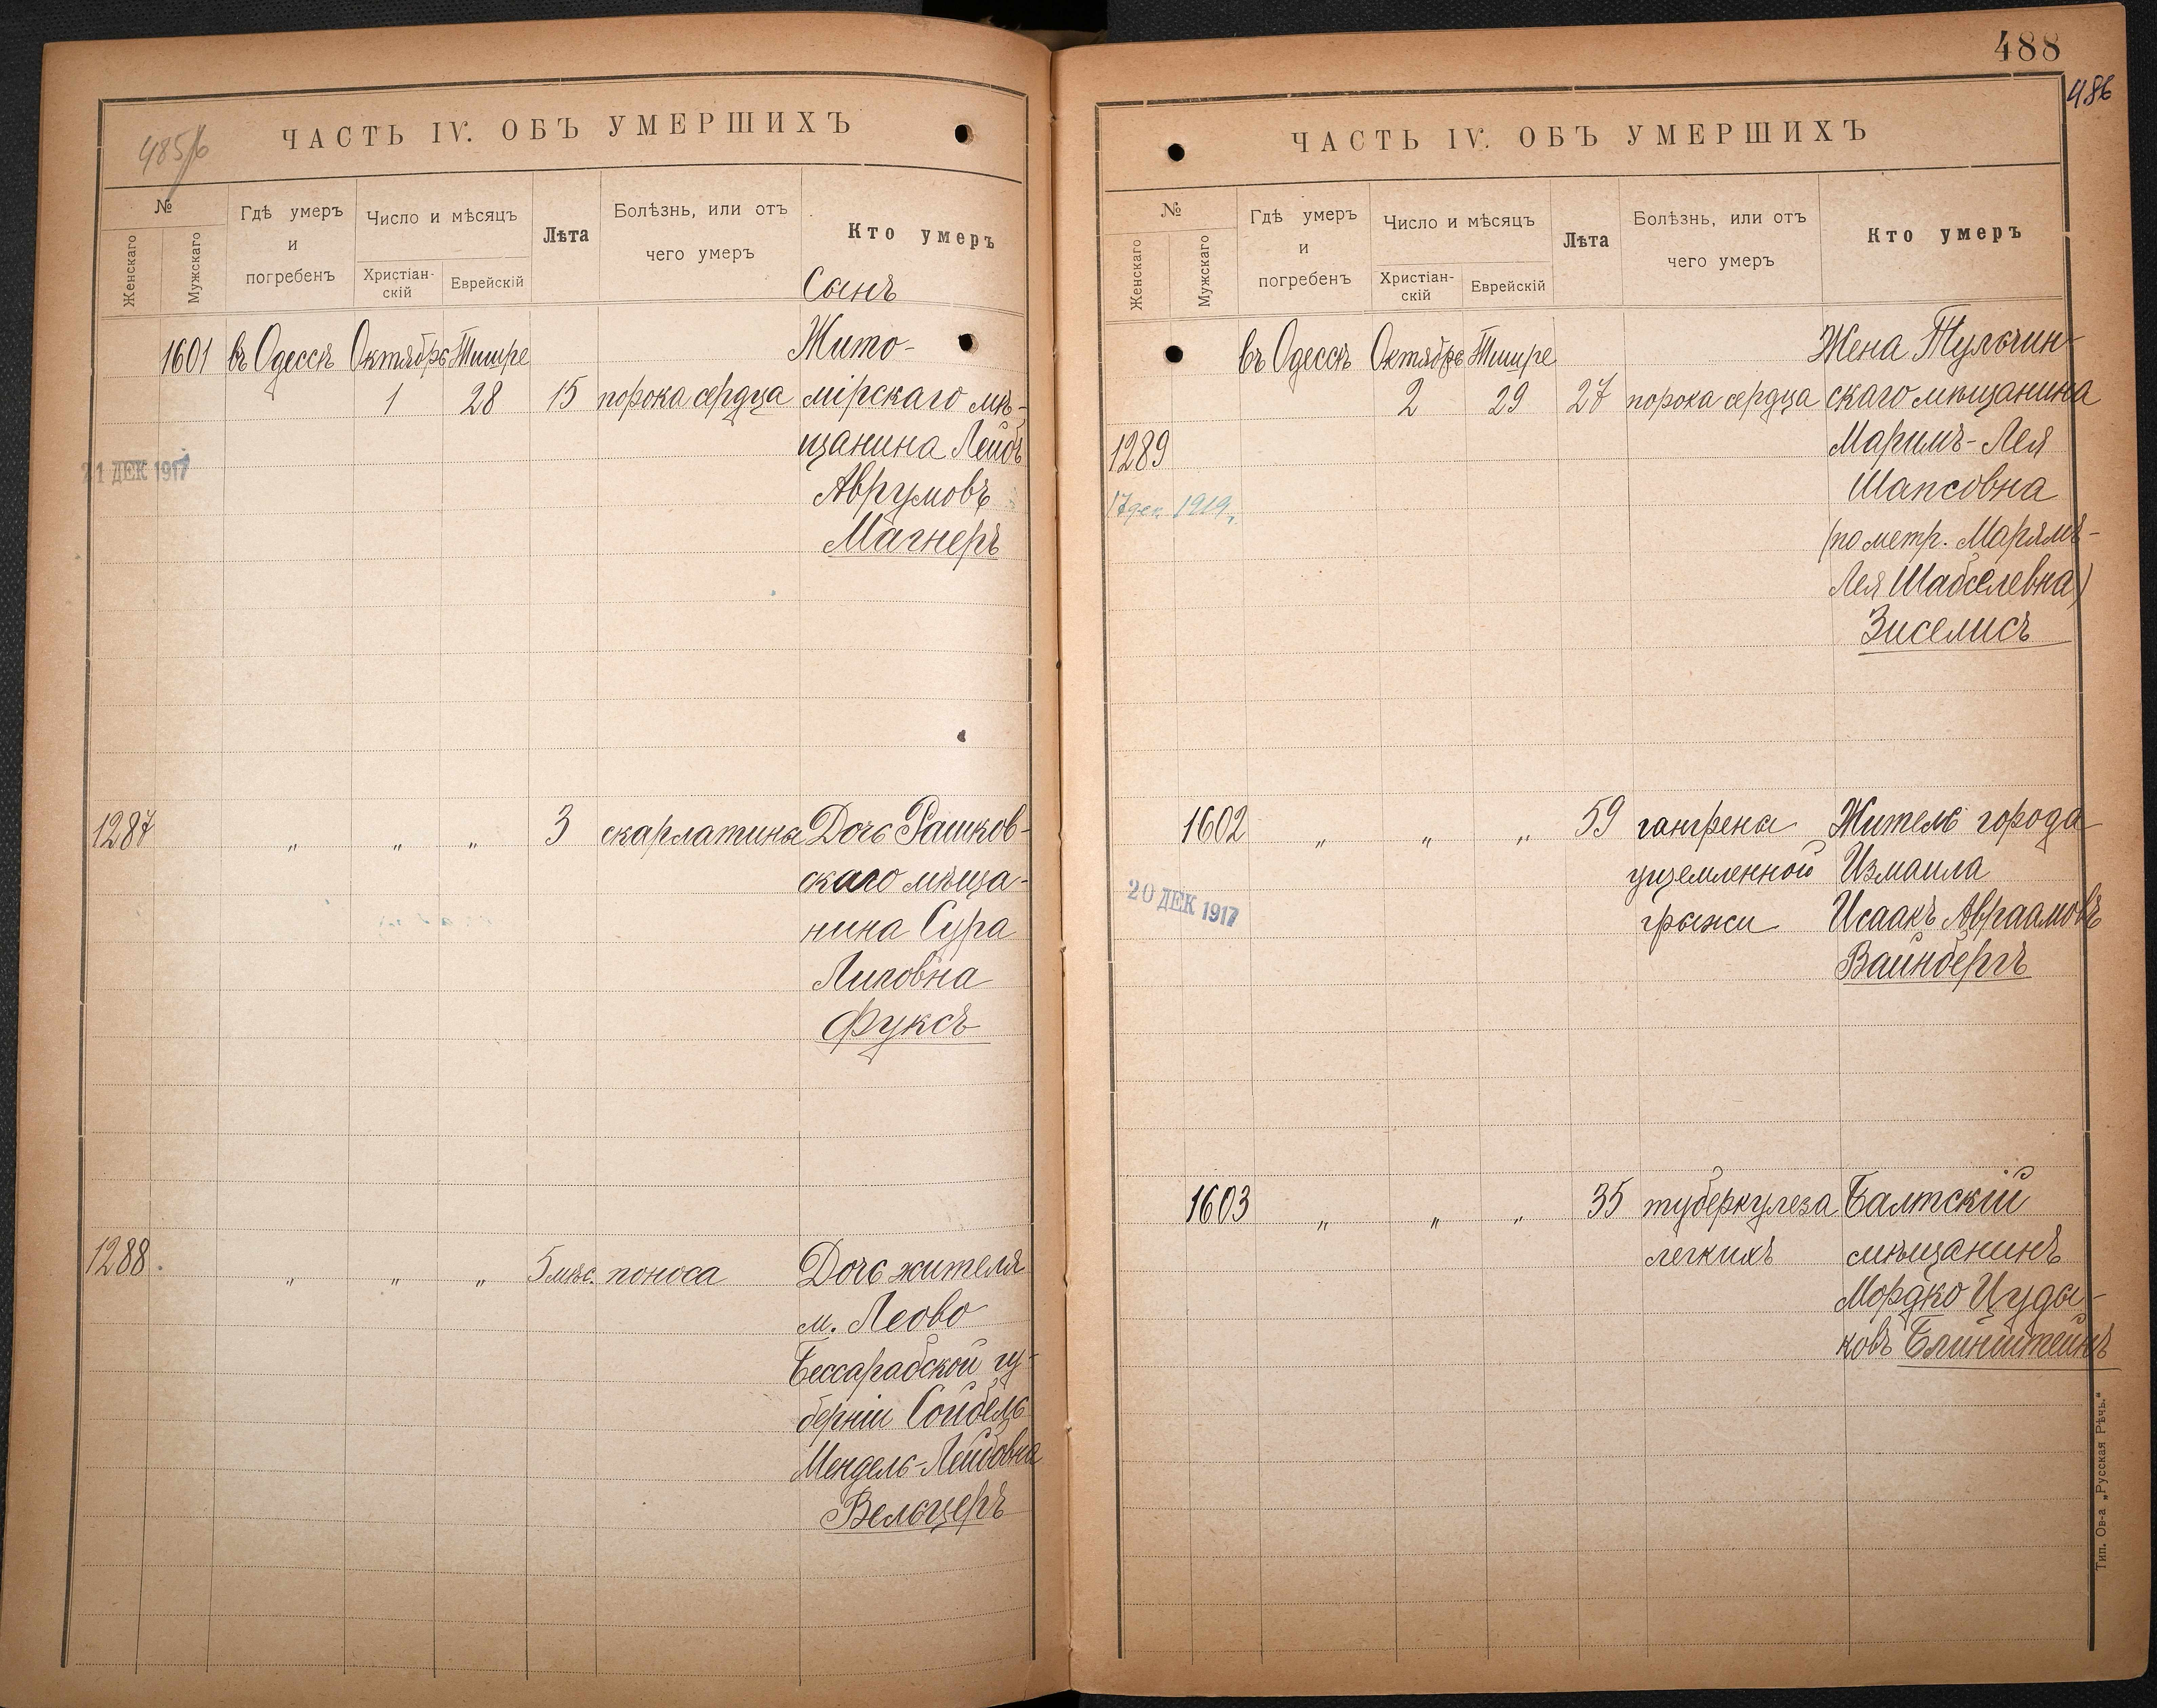 485/6
ЧАСТЬ IV. ОБЪ УМЕРШИХЪ
№
Женскаго
Мужскаго
Гдѣ умеръ
и
погребенъ
Число и мѣсяцъ
Христіан-
скій
Еврейскій
Лѣта
Болѣзнь, или отъ
чего умеръ
Кто умеръ
Сынъ
1601 въ Одессѣ Октябрь Тишре Жито-
1 28 15 порока сердца мірскаго мѣ-
щанина Лейбъ
21 ДЕК 1917
Аврумовъ
Магнеръ
1287 „ „ „ 3 скарлатины Дочь Рашков-
скаго мѣща-
нина Сура
Липовна
Фуксъ
1288. „ „ „ 5 мѣс. поноса Дочь жителя
м. Леово
Бессарабской гу-
берніи Сойбель
Мендель-Лейбовна
Вельцеръ
488
486
ЧАСТЬ IV. ОБЪ УМЕРШИХЪ
№
Женскаго
Мужскаго
Гдѣ умеръ
и
погребенъ
Число и мѣсяцъ
Христіан-
скій
Еврейскій
Лѣта
Болѣзнь, или отъ
чего умеръ
Кто умеръ
въ Одессѣ Октябрь Тишре Жена Тульчин-
2 29 27 порока сердца скаго мѣщанина
1289 Маримъ-Лея
17 дек. 1919 г. Шапсовна
(по метр. Марямъ-
Лея Шабселевна)
Зиселисъ
1602 „ „ „ 59 гангрены Житель города
ущемленной Измаила
20 ДЕК 1917
грыжи Исаакъ Авраамовъ
Вайнбергъ
1603 „ „ „ 35 туберкулеза Балтскій
легкихъ мѣщанинъ
Мордко Цуды-
ковъ Блинштейнъ
Тип. Ов-а „Русская Рѣчь.“